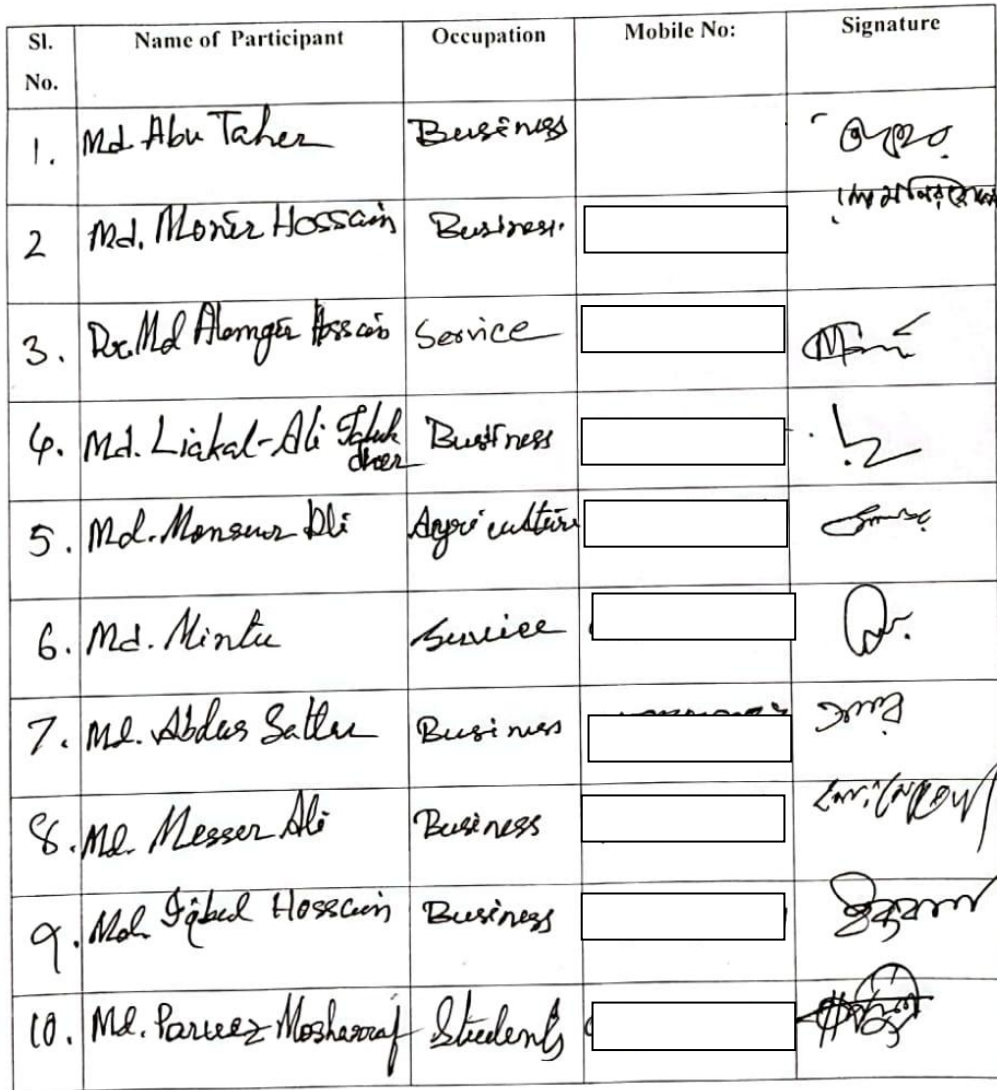 Sl. No. Name of Participant Occupation Mobile No: Signature
1. Md. Abu Taher Business
2 Md. Monir Hossain Business.
3. Dr. Md Alamgir Hossain Service
4. Md. Liakal-Ali Talukdher Business
5. Md. Monsur Ali Agriculture
6. Md. Mintu Service
7. Md. Abdus Satter Business
8. Md. Messer Ali Business
9. Md. Iqbal Hossain Business
10. Md. Parvez Mosharraf Students